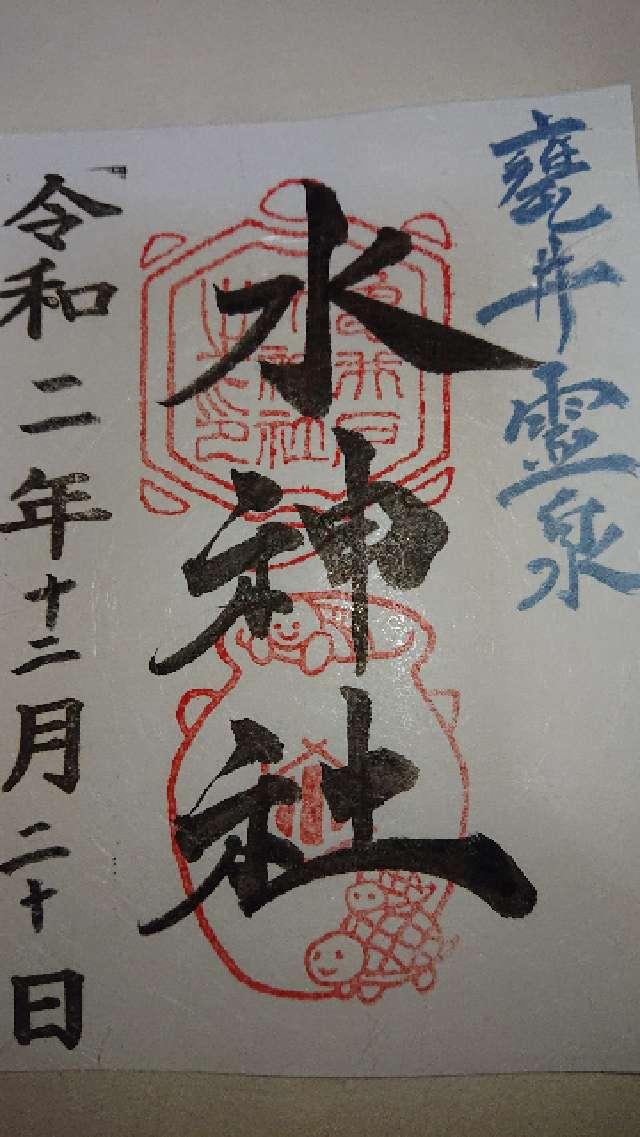 甕井霊泉
水神社
令和二年十二月二十日